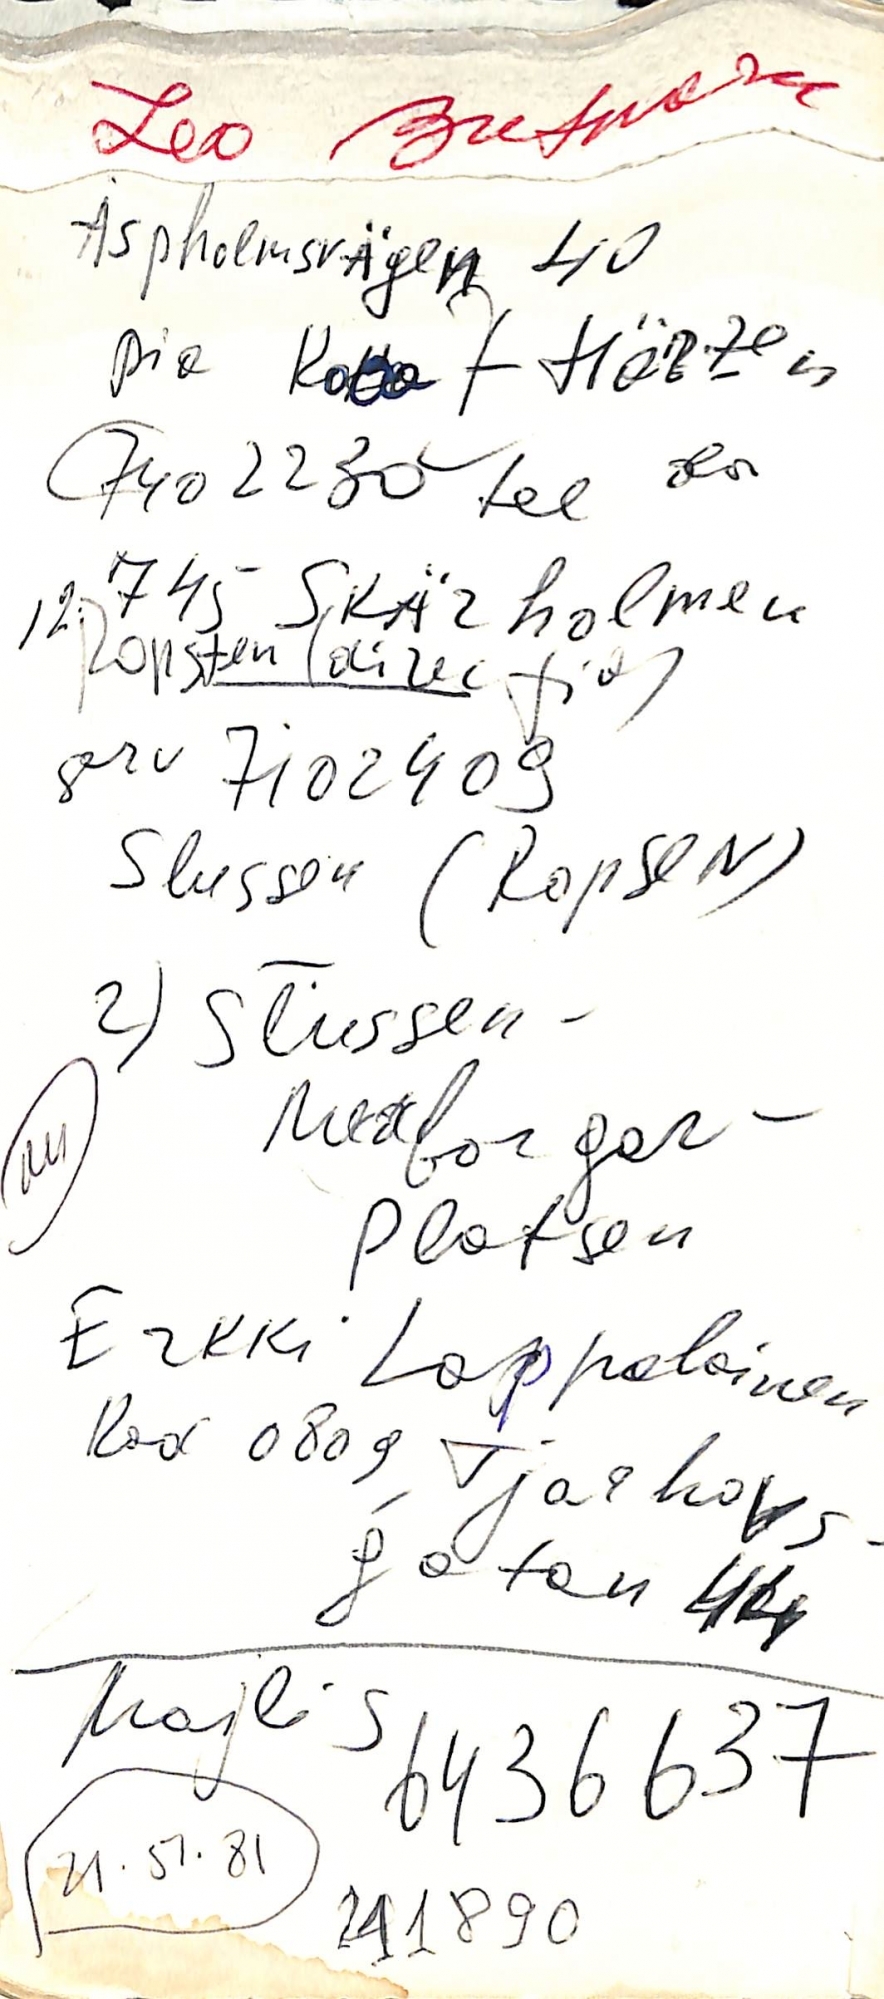 Leo Butnaru
Äspholmsvägen 40
Pia T Härzen
7402230 tel
12. 745 Skärholmen
Ropsten (direcția)
serv 7102409
Slussen (RopseN)
2) Slussen -
Medborgar -
Platsen
Erkki Lappalainen
Kod 0809 Tjarhovs -
gatan 44
Majlis 6436637
21.51.81
241890